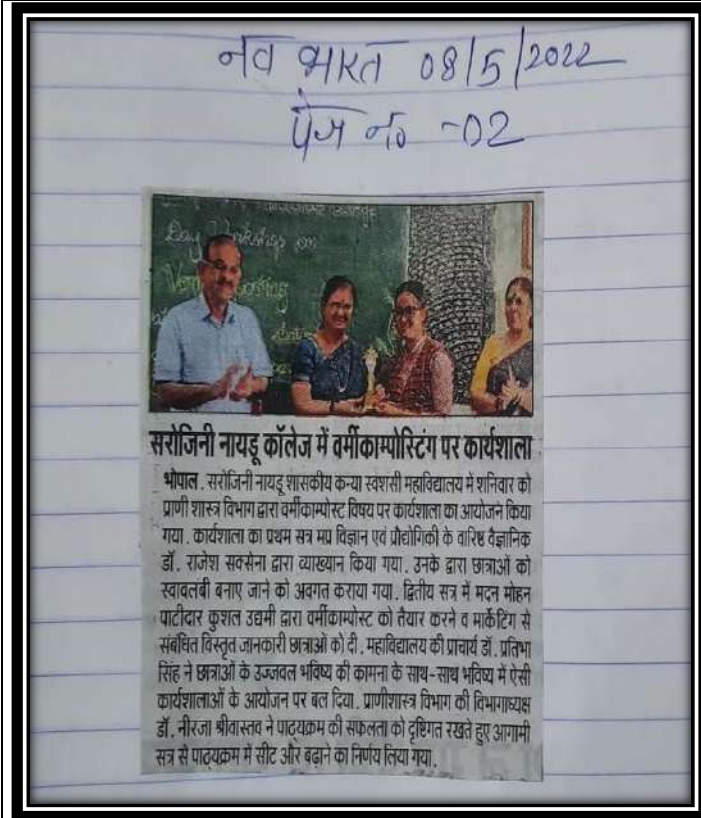 नव भारत 08/5/2022
पेज नं० -02
Day Workshop on
सरोजिनी नायडू कॉलेज में वर्मीकाम्पोस्टिंग पर कार्यशाला
भोपाल. सरोजिनी नायडू शासकीय कन्या स्वशासी महाविद्यालय में शनिवार को
प्राणी शास्त्र विभाग द्वारा वर्मीकाम्पोस्ट विषय पर कार्यशाला का आयोजन किया
गया. कार्यशाला का प्रथम सत्र मप्र विज्ञान एवं प्रौद्योगिकी के वारिष्ठ वैज्ञानिक
डॉ. राजेश सक्सेना द्वारा व्याख्यान किया गया. उनके द्वारा छात्राओं को
स्वावलंबी बनाए जाने को अवगत कराया गया. द्वितीय सत्र में मदन मोहन
पाटीदार कुशल उद्यमी द्वारा वर्मीकाम्पोस्ट को तैयार करने व मार्केटिंग से
संबंधित विस्तृत जानकारी छात्राओं को दी. महाविद्यालय की प्राचार्य डॉ. प्रतिभा
सिंह ने छात्राओं के उज्जवल भविष्य की कामना के साथ-साथ भविष्य में ऐसी
कार्यशालाओं के आयोजन पर बल दिया. प्राणीशास्त्र विभाग की विभागाध्यक्ष
डॉ. नीरजा श्रीवास्तव ने पाठ्यक्रम की सफलता को दृष्टिगत रखते हुए आगामी
सत्र से पाठ्यक्रम में सीट और बढ़ाने का निर्णय लिया गया.